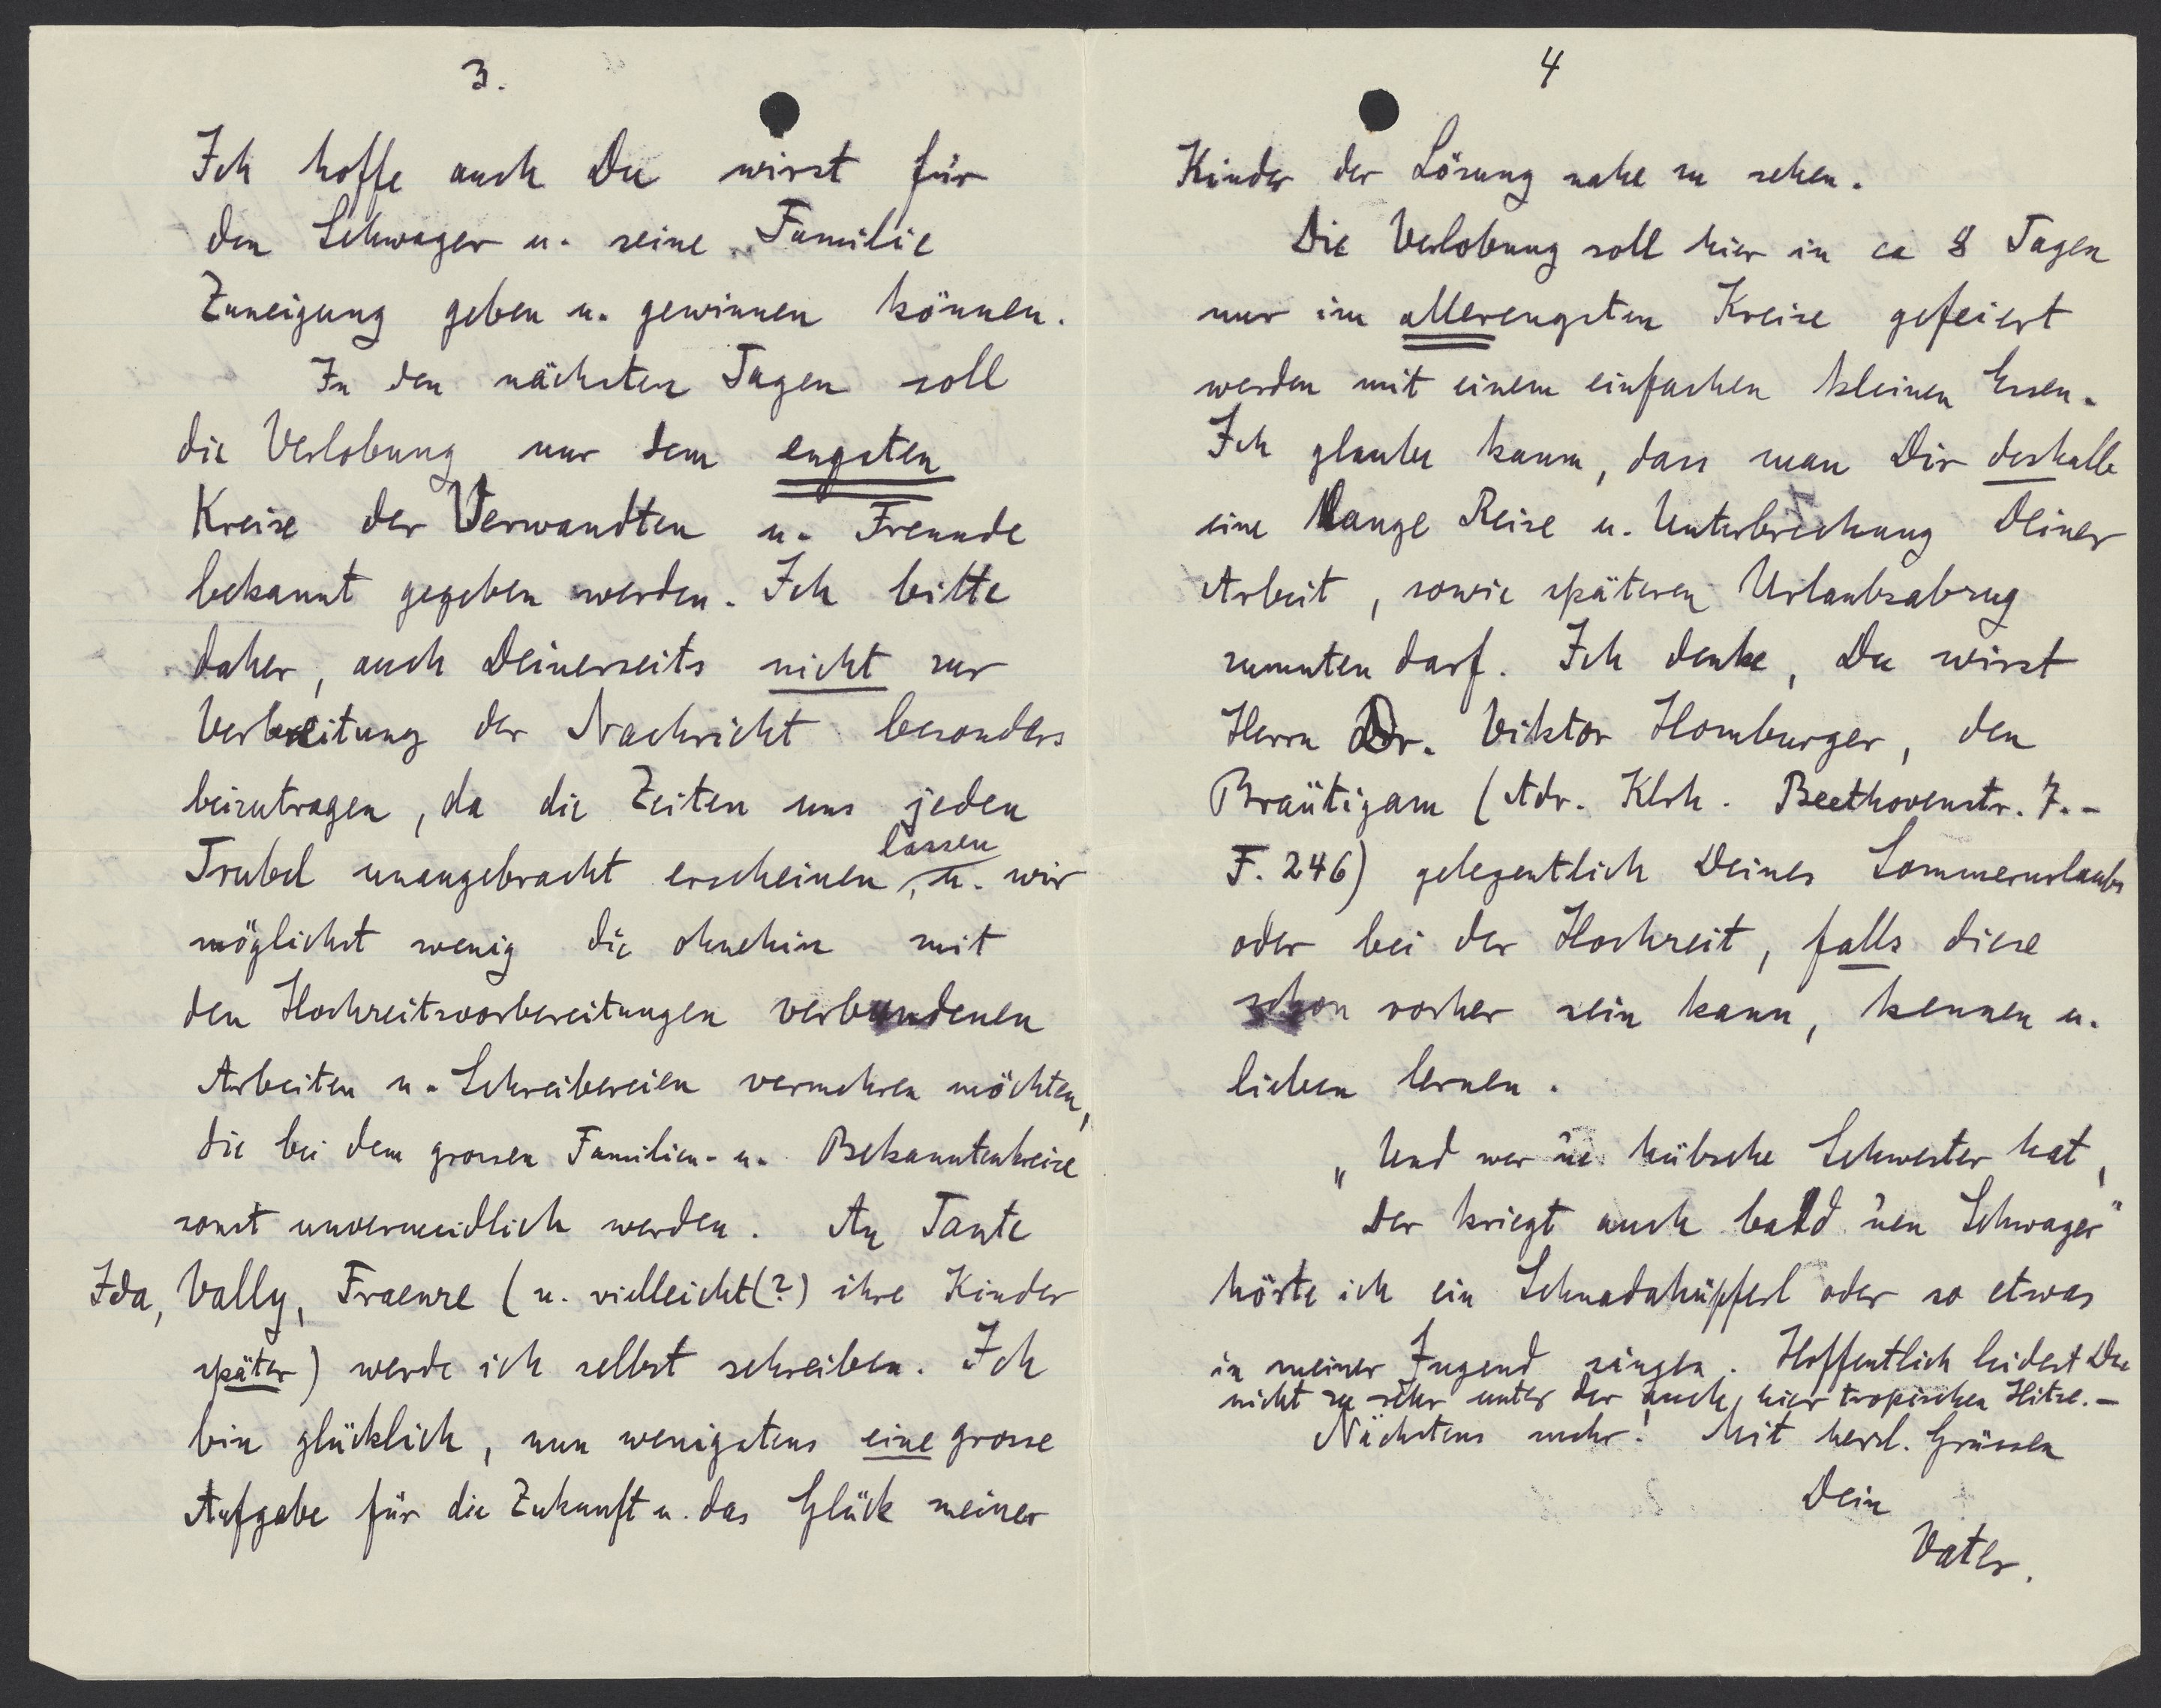 3.
Ich hoffe auch Du wirst für
den Schwager u. seine Familie
Zuneigung geben u. gewinnen können.
In den nächsten Tagen soll
die Verlobung nur dem engsten
Kreise der Verwandten u. Freunde
bekannt gegeben werden. Ich bitte
daher, auch Deinerseits nicht zur
Verbreitung der Nachricht besonders
beizutragen, da die Zeiten uns jeden
Trubel unangebracht erscheinen lassen, u. wir
möglichst wenig die ohnehin mit
den Hochzeitsvorbereitungen verbundenen
Arbeiten u. Schreibereien vermehren möchten,
die bei dem grossen Familien- u. Bekanntenkreise
sonst unvermeidlich werden. An Tante
Ida, Vally, Fraenze (u. vielleicht(?) ihre Kinder
später) werde ich selbst schreiben. Ich
bin glücklich, nun wenigstens eine grosse
Aufgabe für die Zukunft u. das Glück meiner
4
Kinder der Lösung nahe zu sehen.
Die Verlobung soll hier in ca 8 Tagen
nur im allerengsten Kreise gefeiert
werden mit einem einfachen kleinen Essen.
Ich glaube kaum, dass man Dir deshalb
eine lange Reise u. Unterbrechung Deiner
Arbeit, sowie späteren Urlaubsabzug
zumuten darf. Ich denke, Du wirst
Herrn Dr. Viktor Homburger, den
Bräutigam (Adr. Klrh. Beethovenstr. 7. -
F. 246) gelegentlich Deines Sommerurlaubs
oder bei der Hochzeit, falls diese
schon vorher sein kann, kennen u.
lieben lernen.
„Und wer 'ne hübsche Schwester hat,
Der kriegt auch bald 'nen Schwager"
hörte ich ein Schnadahüpferl oder so etwas
in meiner Jugend singen. Hoffentlich leidest Du
nicht zu sehr unter der auch hier tropischen Hitze. -
Nächstens mehr! Mit herzl. Grüssen
Dein
Vater.